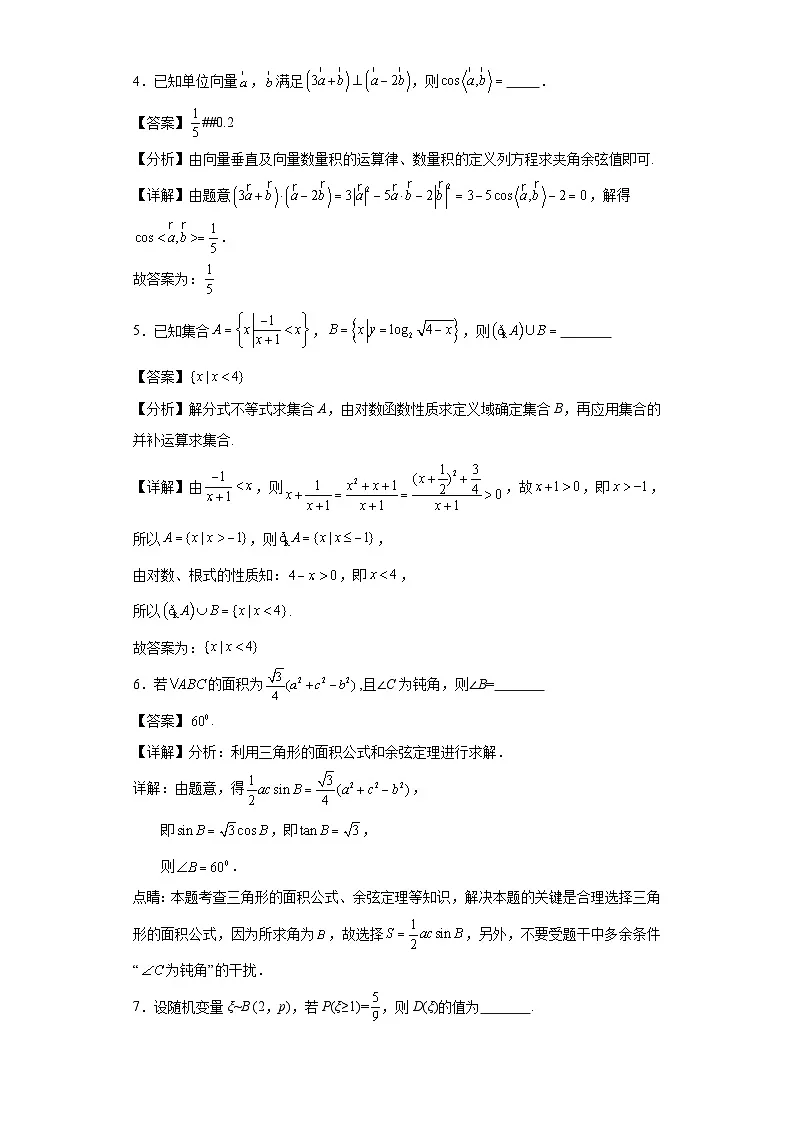 4．已知单位向量a，b满足(3a+b)⊥(a−2b)，则cos⟨a,b⟩=____．
【答案】1/5##0.2
【分析】由向量垂直及向量数量积的运算律、数量积的定义列方程求夹角余弦值即可.
【详解】由题意(3a+b)·(a−2b)=3|a|²−5a·b−2|b|²=3−5cos⟨a,b⟩−2=0，解得
cos<a,b>=1/5．
故答案为：1/5
5．已知集合A={x|−1/(x+1)<x}，B={x|y=log₂√(4−x)}，则(∁ᵣA)∪B=______
【答案】{x|x<4}
【分析】解分式不等式求集合A，由对数函数性质求定义域确定集合B，再应用集合的
并补运算求集合.
【详解】由−1/(x+1)<x，则x+1/(x+1)=(x²+x+1)/(x+1)=((x+1/2)²+3/4)/(x+1)>0，故x+1>0，即x>−1，
所以A={x|x>−1}，则∁ᵣA={x|x≤−1}，
由对数、根式的性质知：4−x>0，即x<4，
所以(∁ᵣA)∪B={x|x<4}．
故答案为：{x|x<4}
6．若VABC的面积为√3/4(a²+c²−b²),且∠C为钝角，则∠B=______
【答案】60⁰．
【详解】分析：利用三角形的面积公式和余弦定理进行求解．
详解：由题意，得1/2acsinB=√3/4(a²+c²−b²)，
即sinB=√3cosB，即tanB=√3，
则∠B=60⁰．
点睛：本题考查三角形的面积公式、余弦定理等知识，解决本题的关键是合理选择三角
形的面积公式，因为所求角为B，故选择S=1/2acsinB，另外，不要受题干中多余条件
“∠C为钝角”的干扰．
7．设随机变量ξ~B(2，p)，若P(ξ≥1)=5/9，则D(ξ)的值为______.